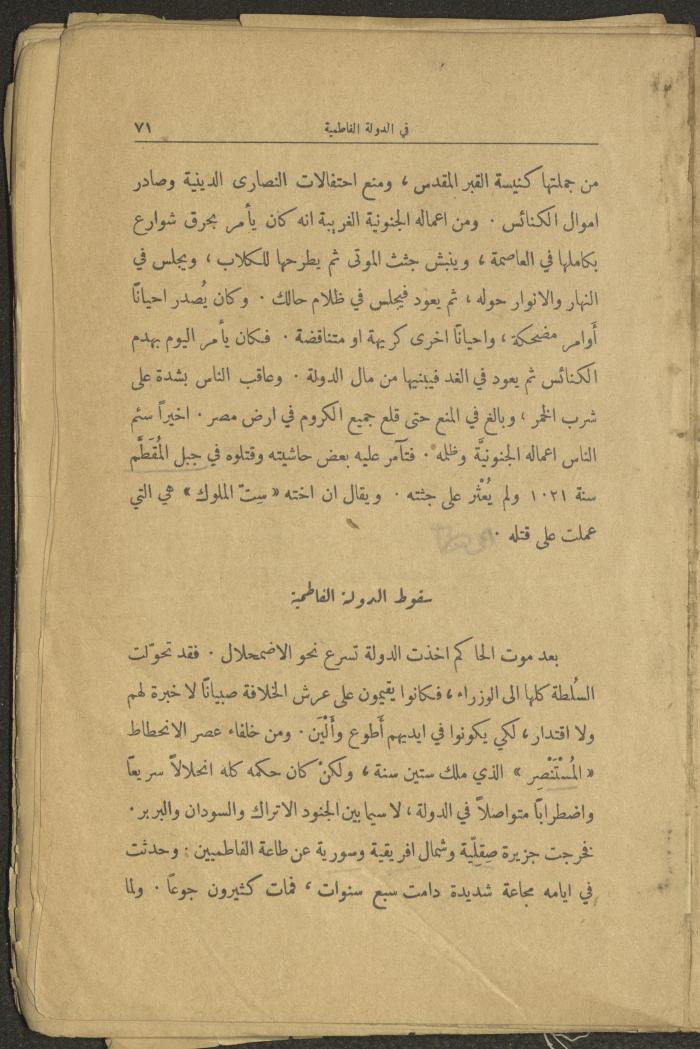 في الدولة الفاطمية ٧١
من جملتها كنيسة القبر المقدس ، ومنع احتفالات النصارى الدينية وصادر
اموال الكنائس . ومن اعماله الجنونية الغريبة انه كان يأمر بحرق شوارع
بكاملها في العاصمة ، وينبش جثث الموتى ثم يطرحها للكلاب ، ويجلس في
النهار والانوار حوله ، ثم يعود فيجلس في ظلام حالك . وكان يُصدر احيانًا
أوامر مضحكة ، واحيانًا اخرى كريهة او متناقضة . فكان يأمر اليوم بهدم
الكنائس ثم يعود في الغد فيبنيها من مال الدولة . وعاقب الناس بشدة على
شرب الخمر ، وبالغ في المنع حتى قلع جميع الكروم في ارض مصر . اخيراً سئم
الناس اعماله الجنونيَّة وظلمه . فتآمر عليه بعض حاشيته وقتلوه في جبل المُقَطَّم
سنة ١٠٢١ ولم يُعْثَر على جثته . ويقال ان اخته « سِتّ الملوك » هي التي
عملت على قتله .
سقوط الدولة الفاطمية
بعد موت الحاكم اخذت الدولة تسرع نحو الاضمحلال . فقد تحوّلت
السُلطة كلها الى الوزراء ، فكانوا يقيمون على عرش الخلافة صبيانًا لا خبرة لهم
ولا اقتدار ، لكي يكونوا في ايديهم أَطوع وأَلْيَن . ومن خلفاء عصر الانحطاط
« المُسْتَنْصِر » الذي ملك ستين سنة ، ولكنْ كان حكمه كله انحلالاً سريعًا
واضطرابًا متواصلاً في الدولة ، لا سيما بين الجنود الاتراك والسودان والبربر .
فخرجت جزيرة صِقِلِّية وشمال افريقية وسورية عن طاعة الفاطميين : وحدثت
في ايامه مجاعة شديدة دامت سبع سنوات ، فمات كثيرون جوعًا . ولما